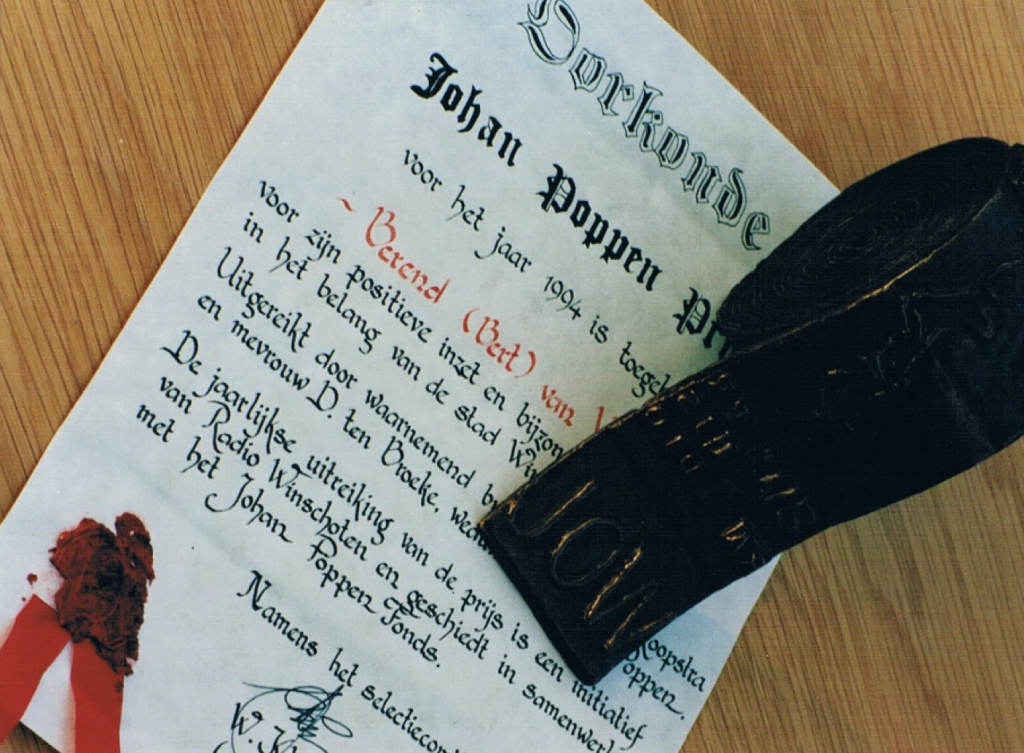 Oorkonde
Johan Poppen Pr
voor het jaar 1994 is toegek
~ Berend (Bert) van
voor zijn positieve inzet en bijzon
in het belang van de stad Win
Uitgereikt door waarnemend b
en mevrouw D. ten Broeke, wedu
Koopstra
Poppen.
De jaarlijkse uitreiking van de prijs is een initiatief
van Radio Winschoten en geschiedt in samenwerk
met het Johan Poppen Fonds.
Namens het selectiecom
W. K